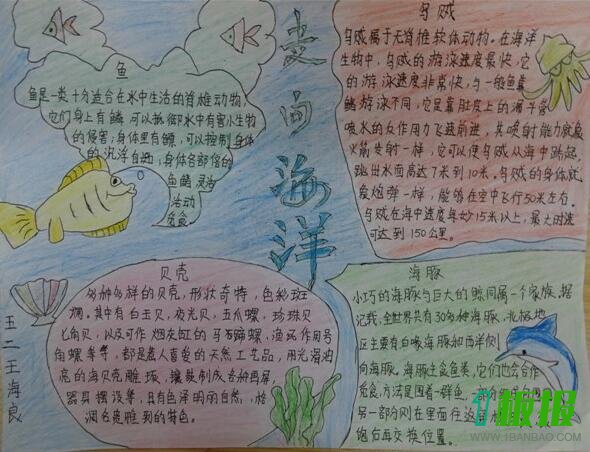 走向海洋
鱼
鱼是一类十分适合在水中生活的脊椎动物,
它们身上有鳞,可以抵御水中有害小生物
的侵害;身体里有鳔,可以控制身体
的沉浮自如;身体各部位的
鱼鳍灵活
活动
觅食
乌贼
乌贼属于无脊椎软体动物。在海洋
生物中,乌贼的游泳速度最快,它
的游泳速度非常快,与一般鱼靠
鳍游泳不同,它是靠肚皮上的漏斗管
喷水的反作用力飞速前进,其喷射能力就象
火箭发射一样,它可以使乌贼从海中跳起
跳出水面高达7米到10米。乌贼的身体就
象炮弹一样,能够在空中飞行50米左右。
乌贼在海中速度每秒15米以上,最大时速
可达到150公里。
贝壳
多种多样的贝壳,形状奇特,色彩斑
斓。其中有白玉贝,夜光贝,五爪螺,珍珠贝
七角贝,以及可作烟灰缸的马蹄螺,渔民作用号
角螺等等,都是惹人喜爱的天然工艺品,用光滑油
亮的海贝壳雕琢,镶嵌制成各种画屏,
器具摆设等,具有色泽明丽自然,
海豚
小巧的海豚与巨大的鲸同属一个家族,据
记载,全世界共有30多种海豚,北极地
区主要有白喙海豚和西洋侧
向海豚。海豚过食鱼类,它们也会合作
觅食,方法是围着一群鱼,
另一部分则在里面
饱后再交换位置。
五二王海良
板报
WWW.1BANBAO.COM